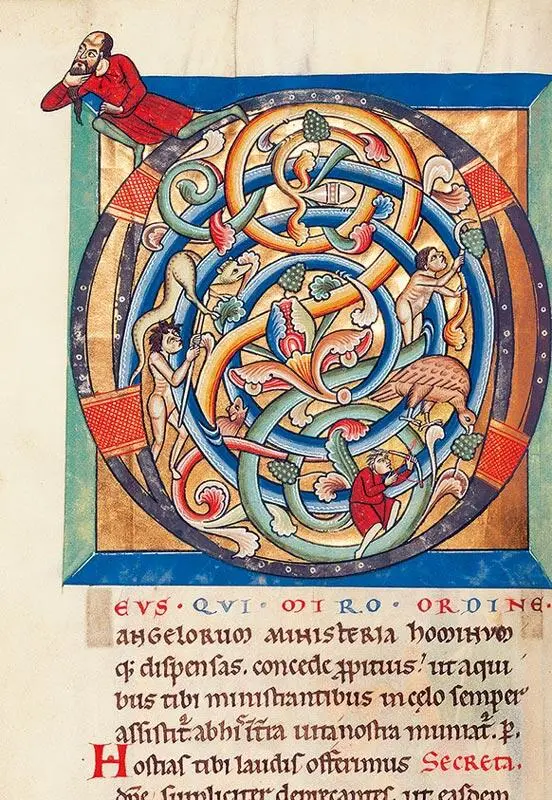 DEVS · QVI · MIRO · ORDINE ·
angelorum ministeria hominum
q; dispensas. concede ppitius! ut a qui
bus tibi ministrantibus in celo semper
assistit ab hi ītra uita nostra muniat. P.
Hostias tibi laudis offerimus Secreta.
dne supliciter deprecantes. ut easdem